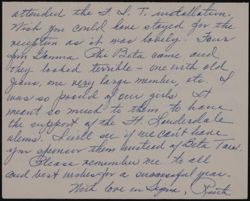 attended the F.S.T. installation.
Wish you could have stayed for the
reception as it was lovely. Four
from Gamma Phi Beta came and
they looked terrible - one with old
jeans, one very large member, etc. I
was so proud of our girls. It
meant so much to them to have
the support of the Ft. Lauderdale
alums. I will see if we can't have
you sponsor them instead of Beta Tau.
Please remember me to all
and best wishes for a successful year.
With love in Sigma, Ruth